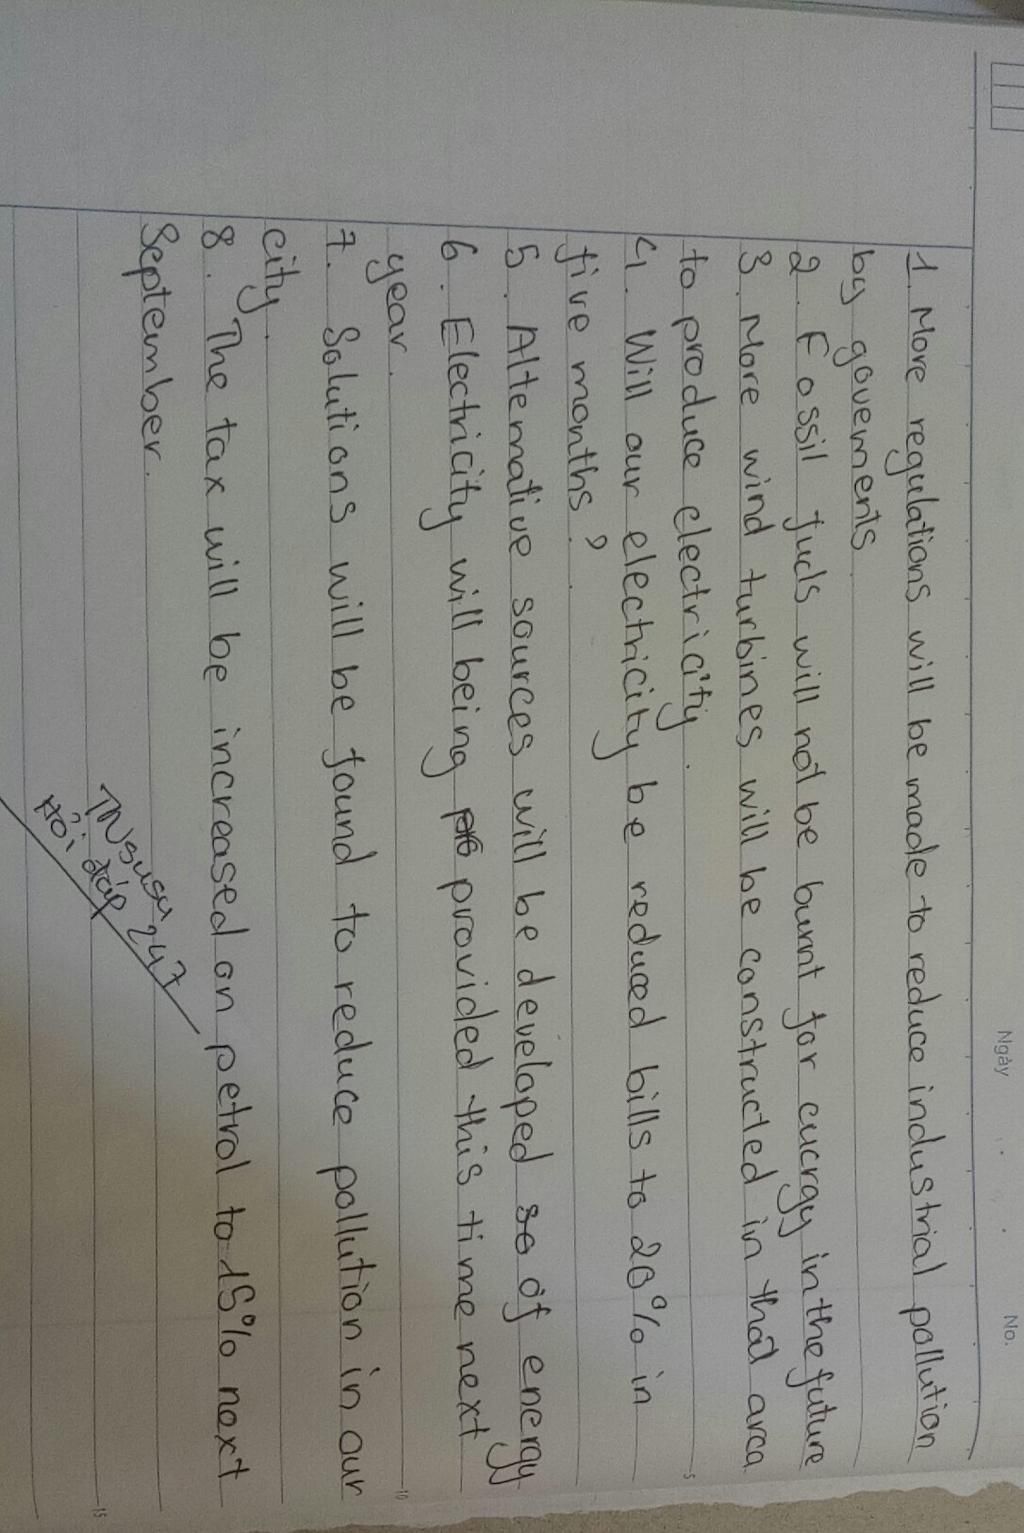 Ngày
No.
1. More regulations will be made to reduce industrial pollution
by goverments.
2. Fossil fuels will not be burnt for energy in the future
3. More wind turbines will be constructed in that area
to produce electricity.
4. Will our electricity be reduced bills to 20% in
five months?
5. Alternative sources will be developed so of energy
6. Electricity will being pro provided this time next
year.
7. Solutions will be found to reduce pollution in our
city.
8. The tax will be increased on petrol to 15% next
September.
TNsusu247
Hỏi đáp
5
10
15